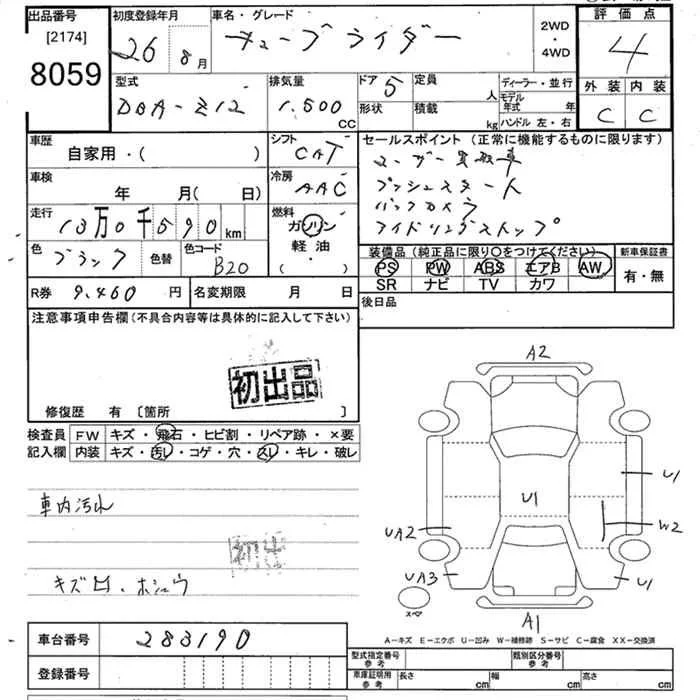 出品番号
[2174]
8059
初度登録年月
26 8月
車名・グレード
キューブライダー
2WD
・
4WD
評価点
4
外装 内装
C C
型式
DBA-Z12
排気量
1.500
CC
ドア
5
形状
定員
人
積載
kg
ディーラー・並行
モデル
年式 年
ハンドル 左・右
車歴
自家用・( )
シフト
CAT
セールスポイント (正常に機能するものに限ります)
ユーザー買取車
プッシュスタート
バックカメラ
アイドリングストップ
車検
年 月( 日)
冷房
AAC
走行
13万0千590 km
燃料
ガソリン
軽油・
( )
色
ブラック
色替
色コード
B20
装備品 (純正品に限り○をつけてください)
PS PW ABS エアB AW
SR ナビ TV カワ
新車保証書
有・無
R券 9.460 円
名変期限 月 日
後日品
注意事項申告欄 (不具合内容等は具体的に記入して下さい)
初出品
修復歴 有 [箇所 ]
検査員
記入欄
FW キズ・飛石・ヒビ割・リペア跡・×要
内装 キズ・汚レ・コゲ・穴・スレ・キレ・破レ
車内汚れ
初出
キズ凹・ホショウ
A2
U1
U1
UA2
W2
UA3
U1
スペ
A1
A-キズ E-エクボ U-凹み W-補修跡 S-サビ C-腐食 XX-交換済
車台番号 283190
登録番号
型式指定番号
参考
類別区分番号
参考
車庫証明用
参考
長さ cm
幅 cm
高さ cm